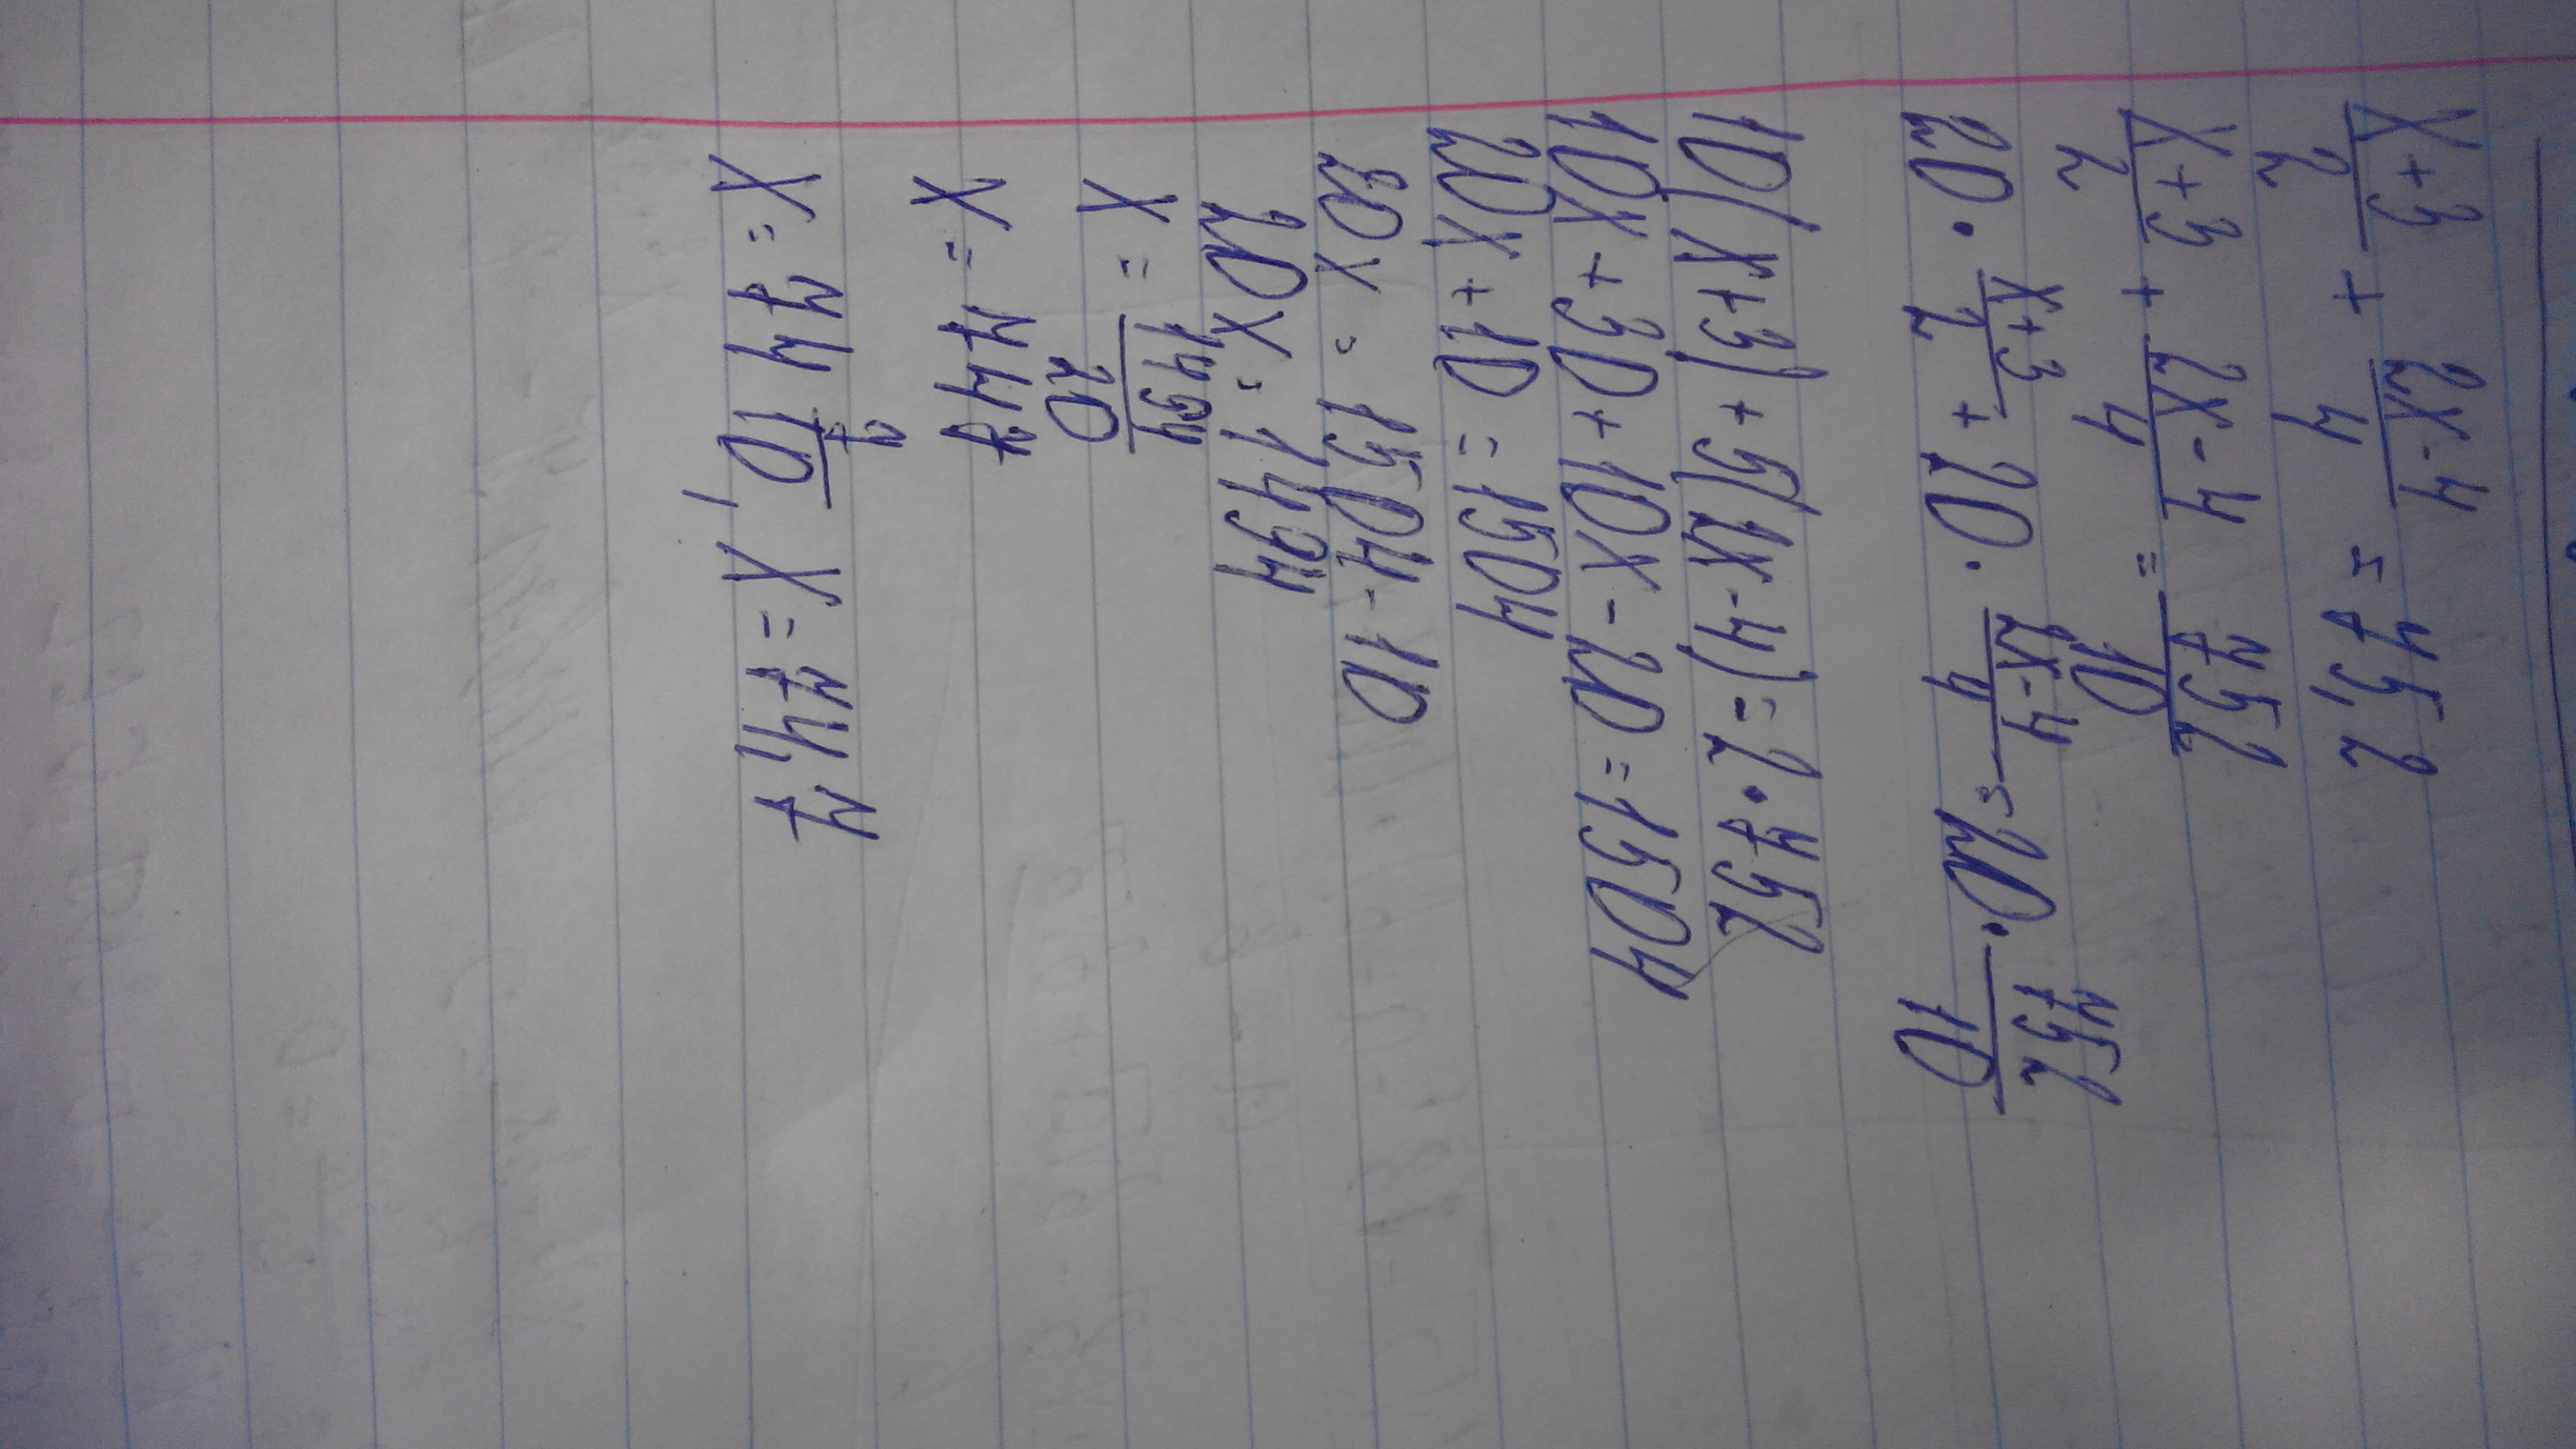 x+3/2 + 2x-4/4 = 75,2
x+3/2 + 2x-4/4 = 752/10
20 · x+3/2 + 20 · 2x-4/4 = 20 · 752/10
10(x+3) + 5(2x-4) = 2 · 752
10x + 30 + 10x - 20 = 1504
20x + 10 = 1504
20x = 1504 - 10
20x = 1494
x = 1494/20
x = 747
x = 74 7/10, x = 74,7